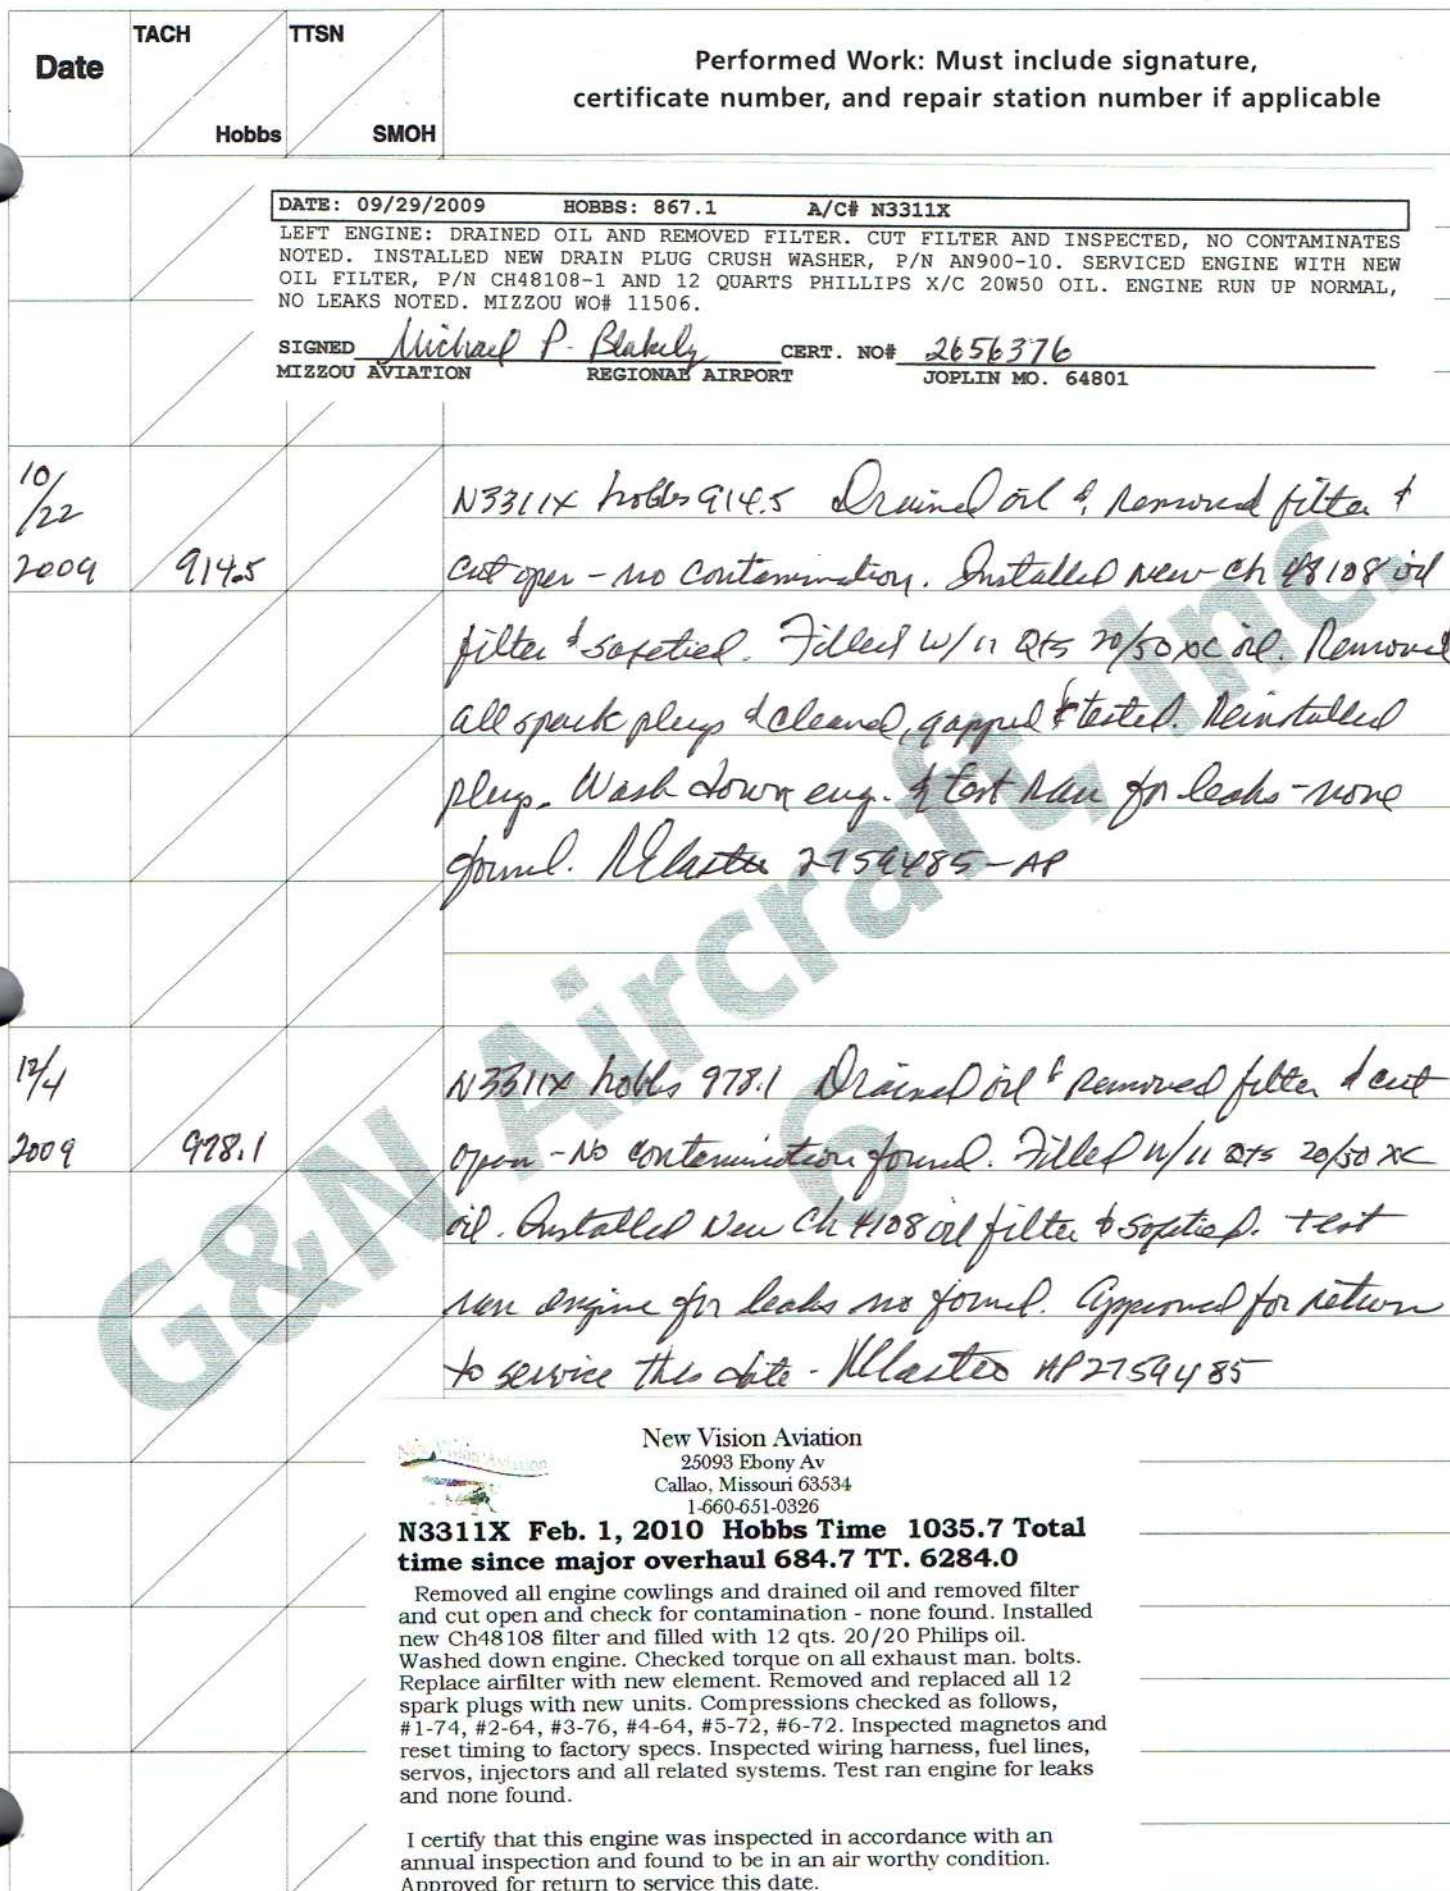 Date
TACH
Hobbs
TTSN
SMOH
Performed Work: Must include signature,
certificate number, and repair station number if applicable
DATE: 09/29/2009 HOBBS: 867.1 A/C# N3311X
LEFT ENGINE: DRAINED OIL AND REMOVED FILTER. CUT FILTER AND INSPECTED, NO CONTAMINATES
NOTED. INSTALLED NEW DRAIN PLUG CRUSH WASHER, P/N AN900-10. SERVICED ENGINE WITH NEW
OIL FILTER, P/N CH48108-1 AND 12 QUARTS PHILLIPS X/C 20W50 OIL. ENGINE RUN UP NORMAL,
NO LEAKS NOTED. MIZZOU WO# 11506.
SIGNED Michael P. Blakely CERT. NO# 2656376
MIZZOU AVIATION REGIONAL AIRPORT JOPLIN MO. 64801
10/22
2009 914.5
N3311X hobbs 914.5 Drained oil & removed filter &
cut open - no contamination. Installed new Ch 48108 oil
filter & safetied. Filled w/11 Qts 20/50 XC oil. Removed
all spark plugs & cleaned, gapped & tested. Reinstalled
plugs. Wash down eng. & test ran for leaks - none
found. 2759485-AP
12/4
2009 978.1
N3311X hobbs 978.1 Drained oil & removed filter & cut
open - No contamination found. Filled w/11 Qts 20/50 XC
oil. Installed New Ch 4108 oil filter & safetied. Test
ran engine for leaks no found. Approved for return
to service this date - AP2759485
G&N Aircraft, Inc.
6
New Vision Aviation
New Vision Aviation
25093 Ebony Av
Callao, Missouri 63534
1-660-651-0326
N3311X Feb. 1, 2010 Hobbs Time 1035.7 Total
time since major overhaul 684.7 TT. 6284.0
Removed all engine cowlings and drained oil and removed filter
and cut open and check for contamination - none found. Installed
new Ch48108 filter and filled with 12 qts. 20/20 Philips oil.
Washed down engine. Checked torque on all exhaust man. bolts.
Replace airfilter with new element. Removed and replaced all 12
spark plugs with new units. Compressions checked as follows,
#1-74, #2-64, #3-76, #4-64, #5-72, #6-72. Inspected magnetos and
reset timing to factory specs. Inspected wiring harness, fuel lines,
servos, injectors and all related systems. Test ran engine for leaks
and none found.
I certify that this engine was inspected in accordance with an
annual inspection and found to be in an air worthy condition.
Approved for return to service this date.